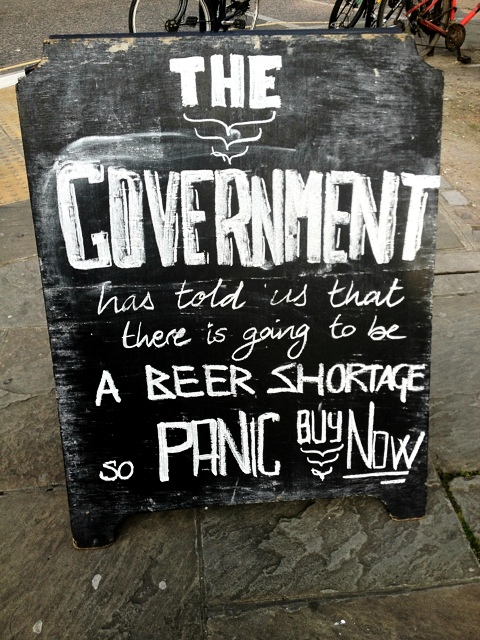 THE
GOVERNMENT
has told us that
there is going to be
A BEER SHORTAGE
so PANIC BUY NOW